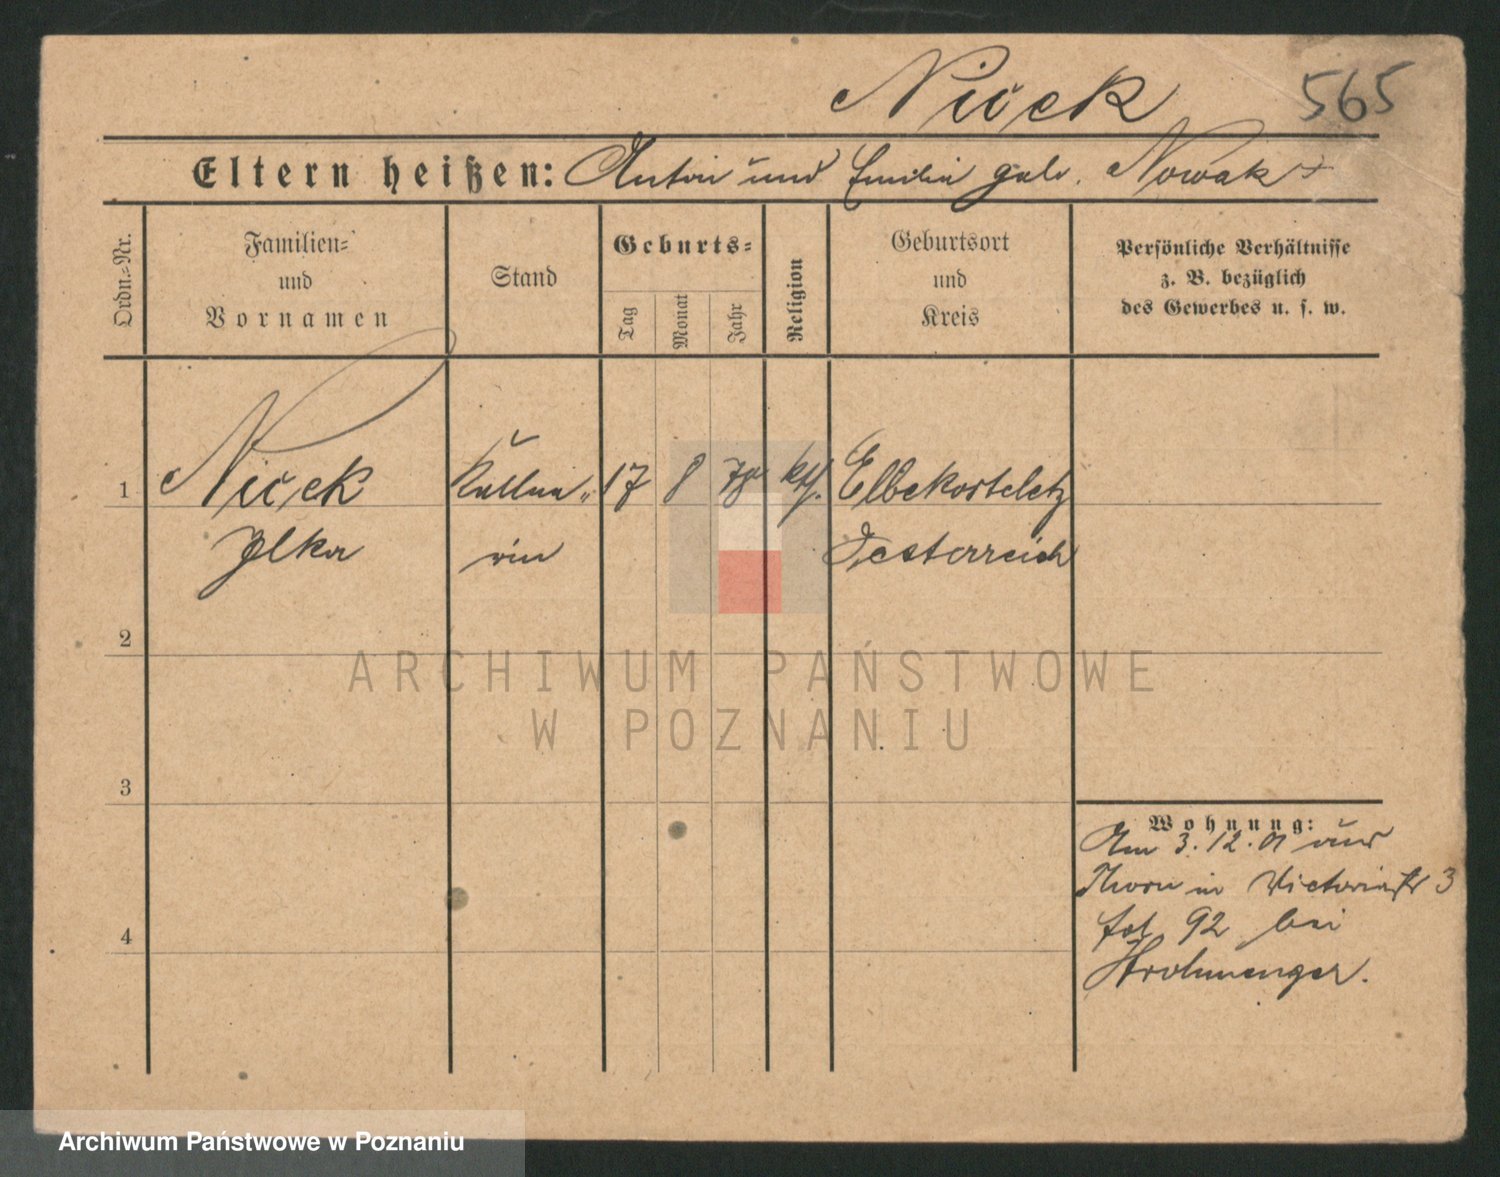 Niček 565
Eltern heißen: Anton und Emilia geb. Nowak
Ordn.-Nr.
Familien-
und
Vornamen
Stand
Geburts-
Tag
Monat
Jahr
Religion
Geburtsort
und
Kreis
Persönliche Verhältnisse
z. B. bezüglich
des Gewerbes u. s. w.
1 Niček Kellne- 17 8 78 kth. Elbekosteletz
Jlka rin Oesterreich
2
ARCHIWUM PAŃSTWOWE
W POZNANIU
3
Wohnung:
Am 3.12.01 aus
Thorn in Victoriastr 3
92 bei
4
Archiwum Państwowe w Poznaniu